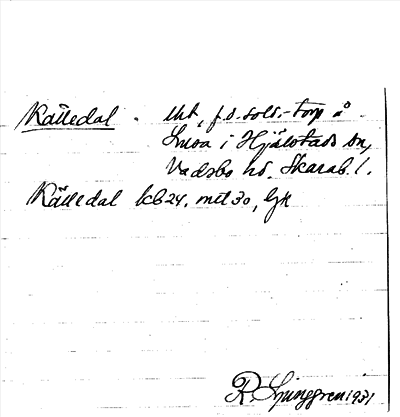 Källedal . utt, f.d. sold.-torp å
Smoa i Hjälstads sn,
Vadsbo hd. Skarab. l.
Källedal kb24. mtl30, Ljk
R. Ljunggren 1931